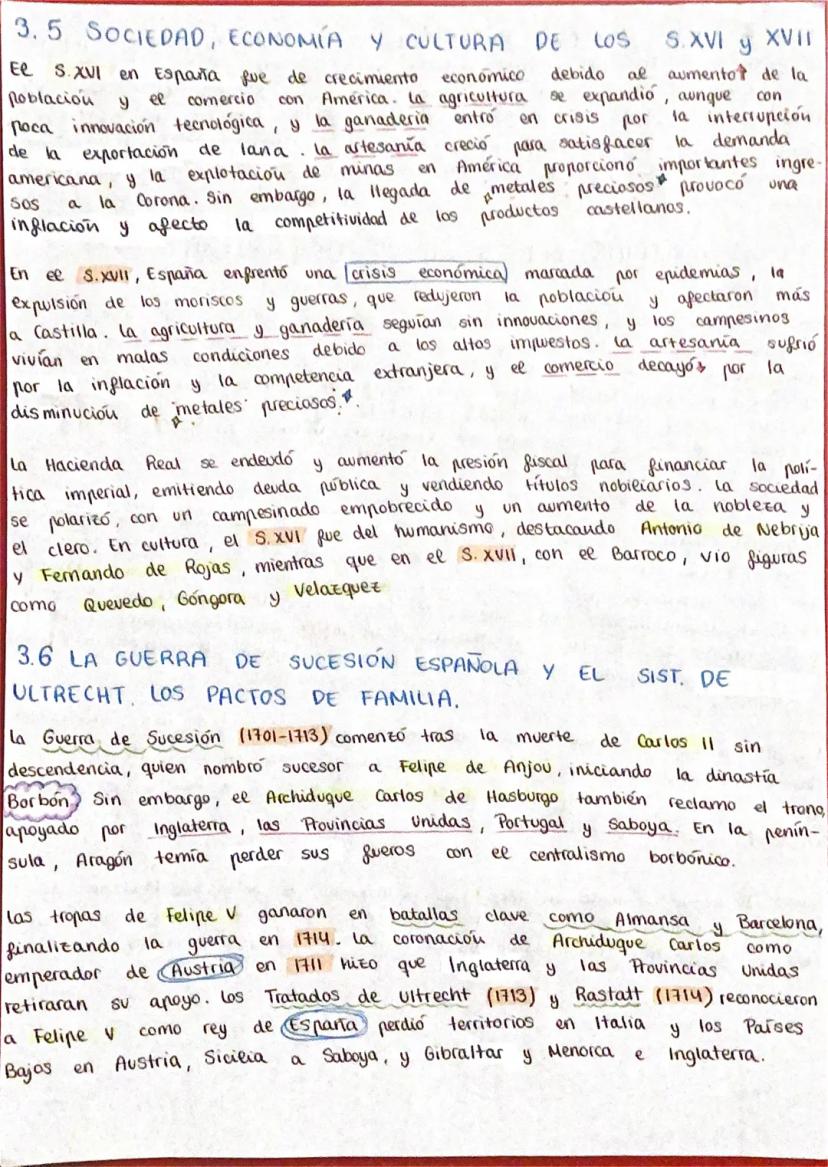 3.5 SOCIEDAD, ECONOMÍA Y CULTURA DE LOS S.XVI y XVII
El S.XVI en España fue de crecimiento económico debido al aumento↑ de la
población y el comercio con América. La agricultura se expandió, aunque con
poca innovación tecnológica, y la ganadería entró en crisis por la interrupción
de la exportación de lana. La artesanía creció para satisfacer la demanda
americana, y la explotación de minas en América proporcionó importantes ingre-
sos a la Corona. Sin embargo, la llegada de metales preciosos provocó una
inflación y afecto la competitividad de los productos castellanos.
En el S.XVII, España enfrentó una crisis económica marcada por epidemias, la
expulsión de los moriscos y guerras, que redujeron la población y afectaron más
a Castilla. La agricultura y ganadería seguían sin innovaciones, y los campesinos
vivían en malas condiciones debido a los altos impuestos. La artesanía sufrió
por la inflación y la competencia extranjera, y el comercio decayó↓ por la
disminución de metales preciosos.
La Hacienda Real se endeudó y aumentó la presión fiscal para financiar la polí-
tica imperial, emitiendo deuda pública y vendiendo títulos nobiliarios. La sociedad
se polarizó, con un campesinado empobrecido y un aumento de la nobleza y
el clero. En cultura, el S.XVI fue del humanismo, destacando Antonio de Nebrija
y Fernando de Rojas, mientras que en el S.XVII, con el Barroco, vio figuras
como Quevedo, Góngora y Velazquez
3.6 LA GUERRA DE SUCESIÓN ESPAÑOLA Y EL SIST. DE
ULTRECHT. LOS PACTOS DE FAMILIA.
La Guerra de Sucesión (1701-1713) comenzó tras la muerte de Carlos II sin
descendencia, quien nombró sucesor a Felipe de Anjou, iniciando la dinastía
Borbón. Sin embargo, el Archiduque Carlos de Hasburgo también reclamo el trono,
apoyado por Inglaterra, las Provincias Unidas, Portugal y Saboya. En la penín-
sula, Aragón temía perder sus fueros con el centralismo borbónico.
Las tropas de Felipe V ganaron en batallas clave como Almansa y Barcelona,
finalizando la guerra en 1714. La coronación de Archiduque Carlos como
emperador de Austria en 1711 hizo que Inglaterra y las Provincias Unidas
retiraran su apoyo. Los Tratados de Ultrecht (1713) y Rastatt (1714) reconocieron
a Felipe V como rey de España perdió territorios en Italia y los Países
Bajos en Austria, Sicilia a Saboya, y Gibraltar y Menorca e Inglaterra.